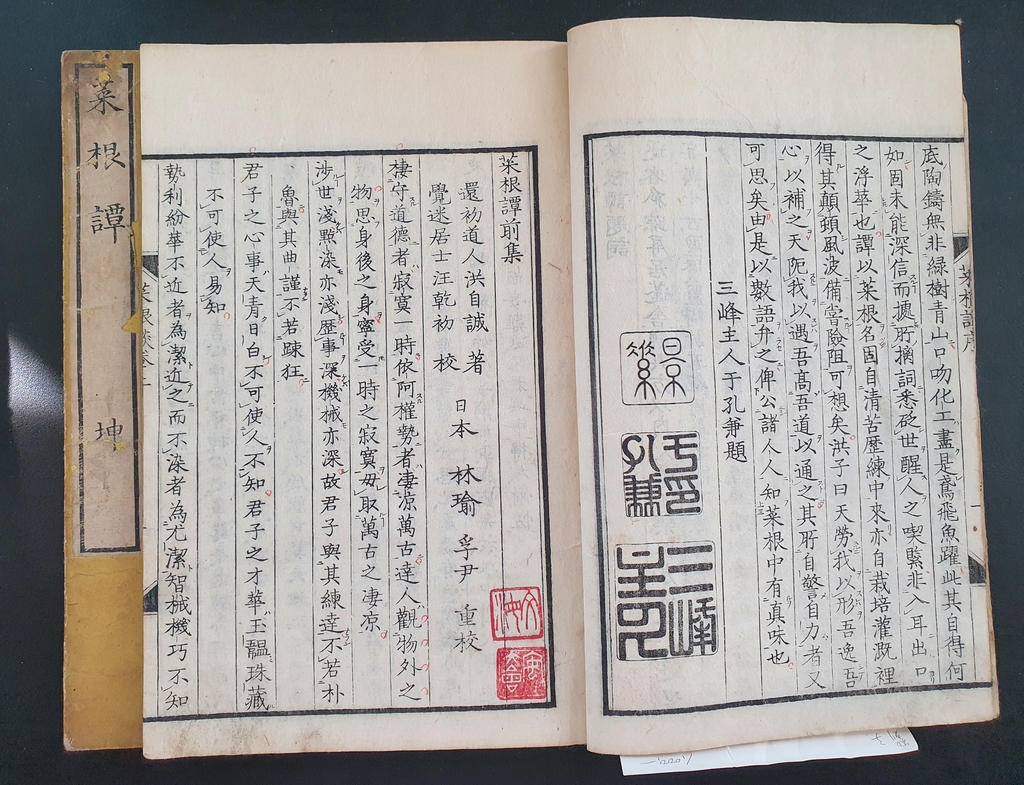 底陶鑄無非綠樹青山口吻化工盡是鳶飛魚躍此其自得何
如固未能深信而據所摘詞悉砭世醒人之喫緊非入耳出口
之浮華也譚以菜根名固自清苦歷練中來亦自栽培灌溉裡
得其顛頓風波備嘗險阻可想矣洪子曰天勞我以形吾逸吾
心以補之天阨我以遇吾高吾道以通之其所自警自力者又
可思矣由是以數語弁之俾公諸人人知菜根中有真味也
三峰主人于孔兼題
于孔兼印
三峰主人
菜根譚前集
還初道人洪自誠 著
覺迷居士汪乾初 校
日本 林瑜 孚尹 重校
棲守道德者寂寞一時依阿權勢者凄凉萬古達人觀物外之
物思身後之身寧受一時之寂寞毋取萬古之凄凉
涉世淺點染亦淺歷事深機械亦深故君子與其練達不若朴
魯與其曲謹不若踈狂
君子之心事天青日白不可使人不知君子之才華玉韞珠藏
不可使人易知
勢利紛華不近者為潔近之而不染者為尤潔智械機巧不知
菜根譚 坤